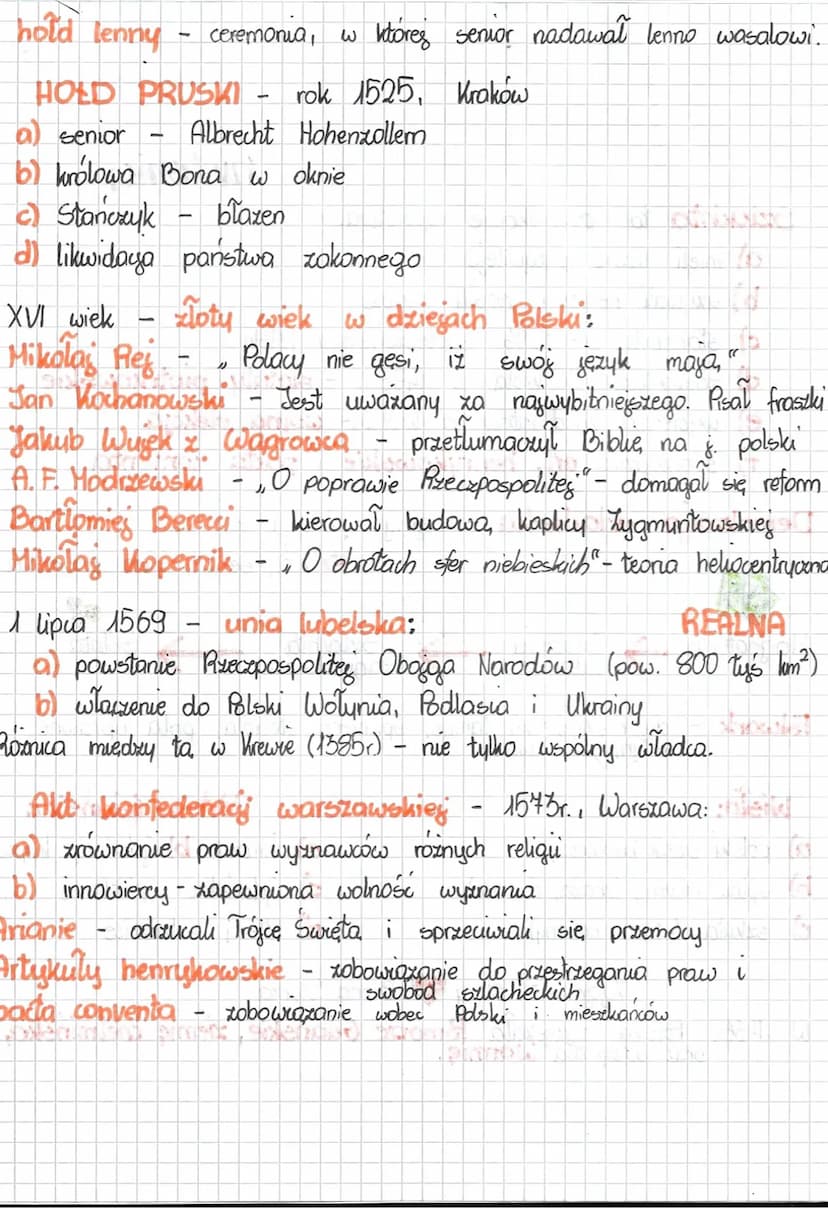 hołd lenny - ceremonia, w której senior nadawał lenno wasalowi.
HOŁD PRUSKI - rok 1525, Kraków
a) senior - Albrecht Hohenzollern
b) królowa Bona w oknie
c) Stańczyk - błazen
d) likwidacja państwa zakonnego
XVI wiek - złoty wiek w dziejach Polski:
Mikołaj Rej - „Polacy nie gęsi, iż swój język mają"
Jan Kochanowski - Jest uważany za najwybitniejszego. Pisał fraszki
Jakub Wujek z Wągrowca - przetłumaczył Biblię na j. polski
A. F. Modrzewski - „O poprawie Rzeczpospolitej" - domagał się reform
Bartłomiej Berecci - kierował budową kaplicy Zygmuntowskiej
Mikołaj Kopernik - „O obrotach sfer niebieskich" - teoria heliocentryczna
1 lipca 1569 - unia lubelska: REALNA
a) powstanie Rzeczpospolitej Obojga Narodów (pow. 800 tyś km²)
b) włączenie do Polski Wołynia, Podlasia i Ukrainy
Różnica między tą w Krewie (1385r.) - nie tylko wspólny władca.
Akt konfederacji warszawskiej - 1573r., Warszawa:
a) zrównanie praw wyznawców różnych religii
b) innowiercy - zapewniona wolność wyznania
Arianie - odrzucali Trójcę Świętą i sprzeciwiali się przemocy
Artykuły henrykowskie - zobowiązanie do przestrzegania praw i
swobód szlacheckich
pacta conventa - zobowiązanie wobec Polski i mieszkańców